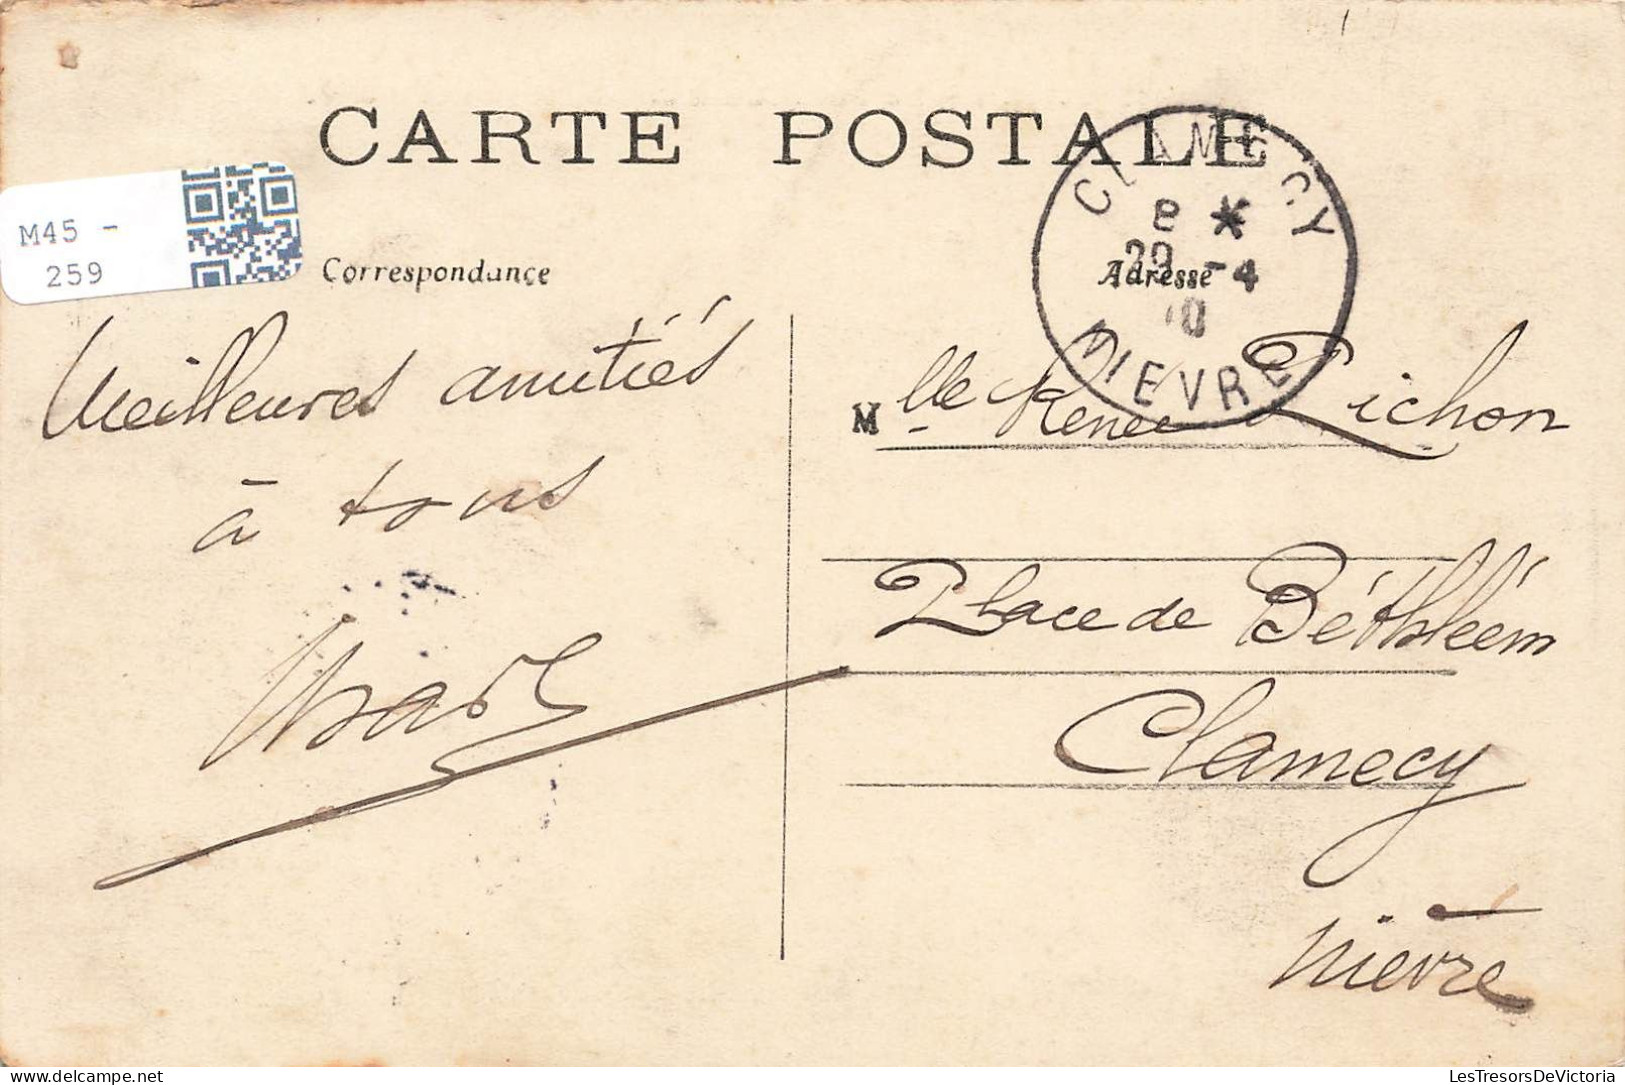 CARTE POSTALE
M45 -
259
CLAMECY
8 *
29 -4
10
NIEVRE
Correspondance
Adresse
Meilleures amitiés
à tous
Mlle Renée Pichon
Place de Béthléem
Clamecy
Nièvre
LesTresorsDeVictoria